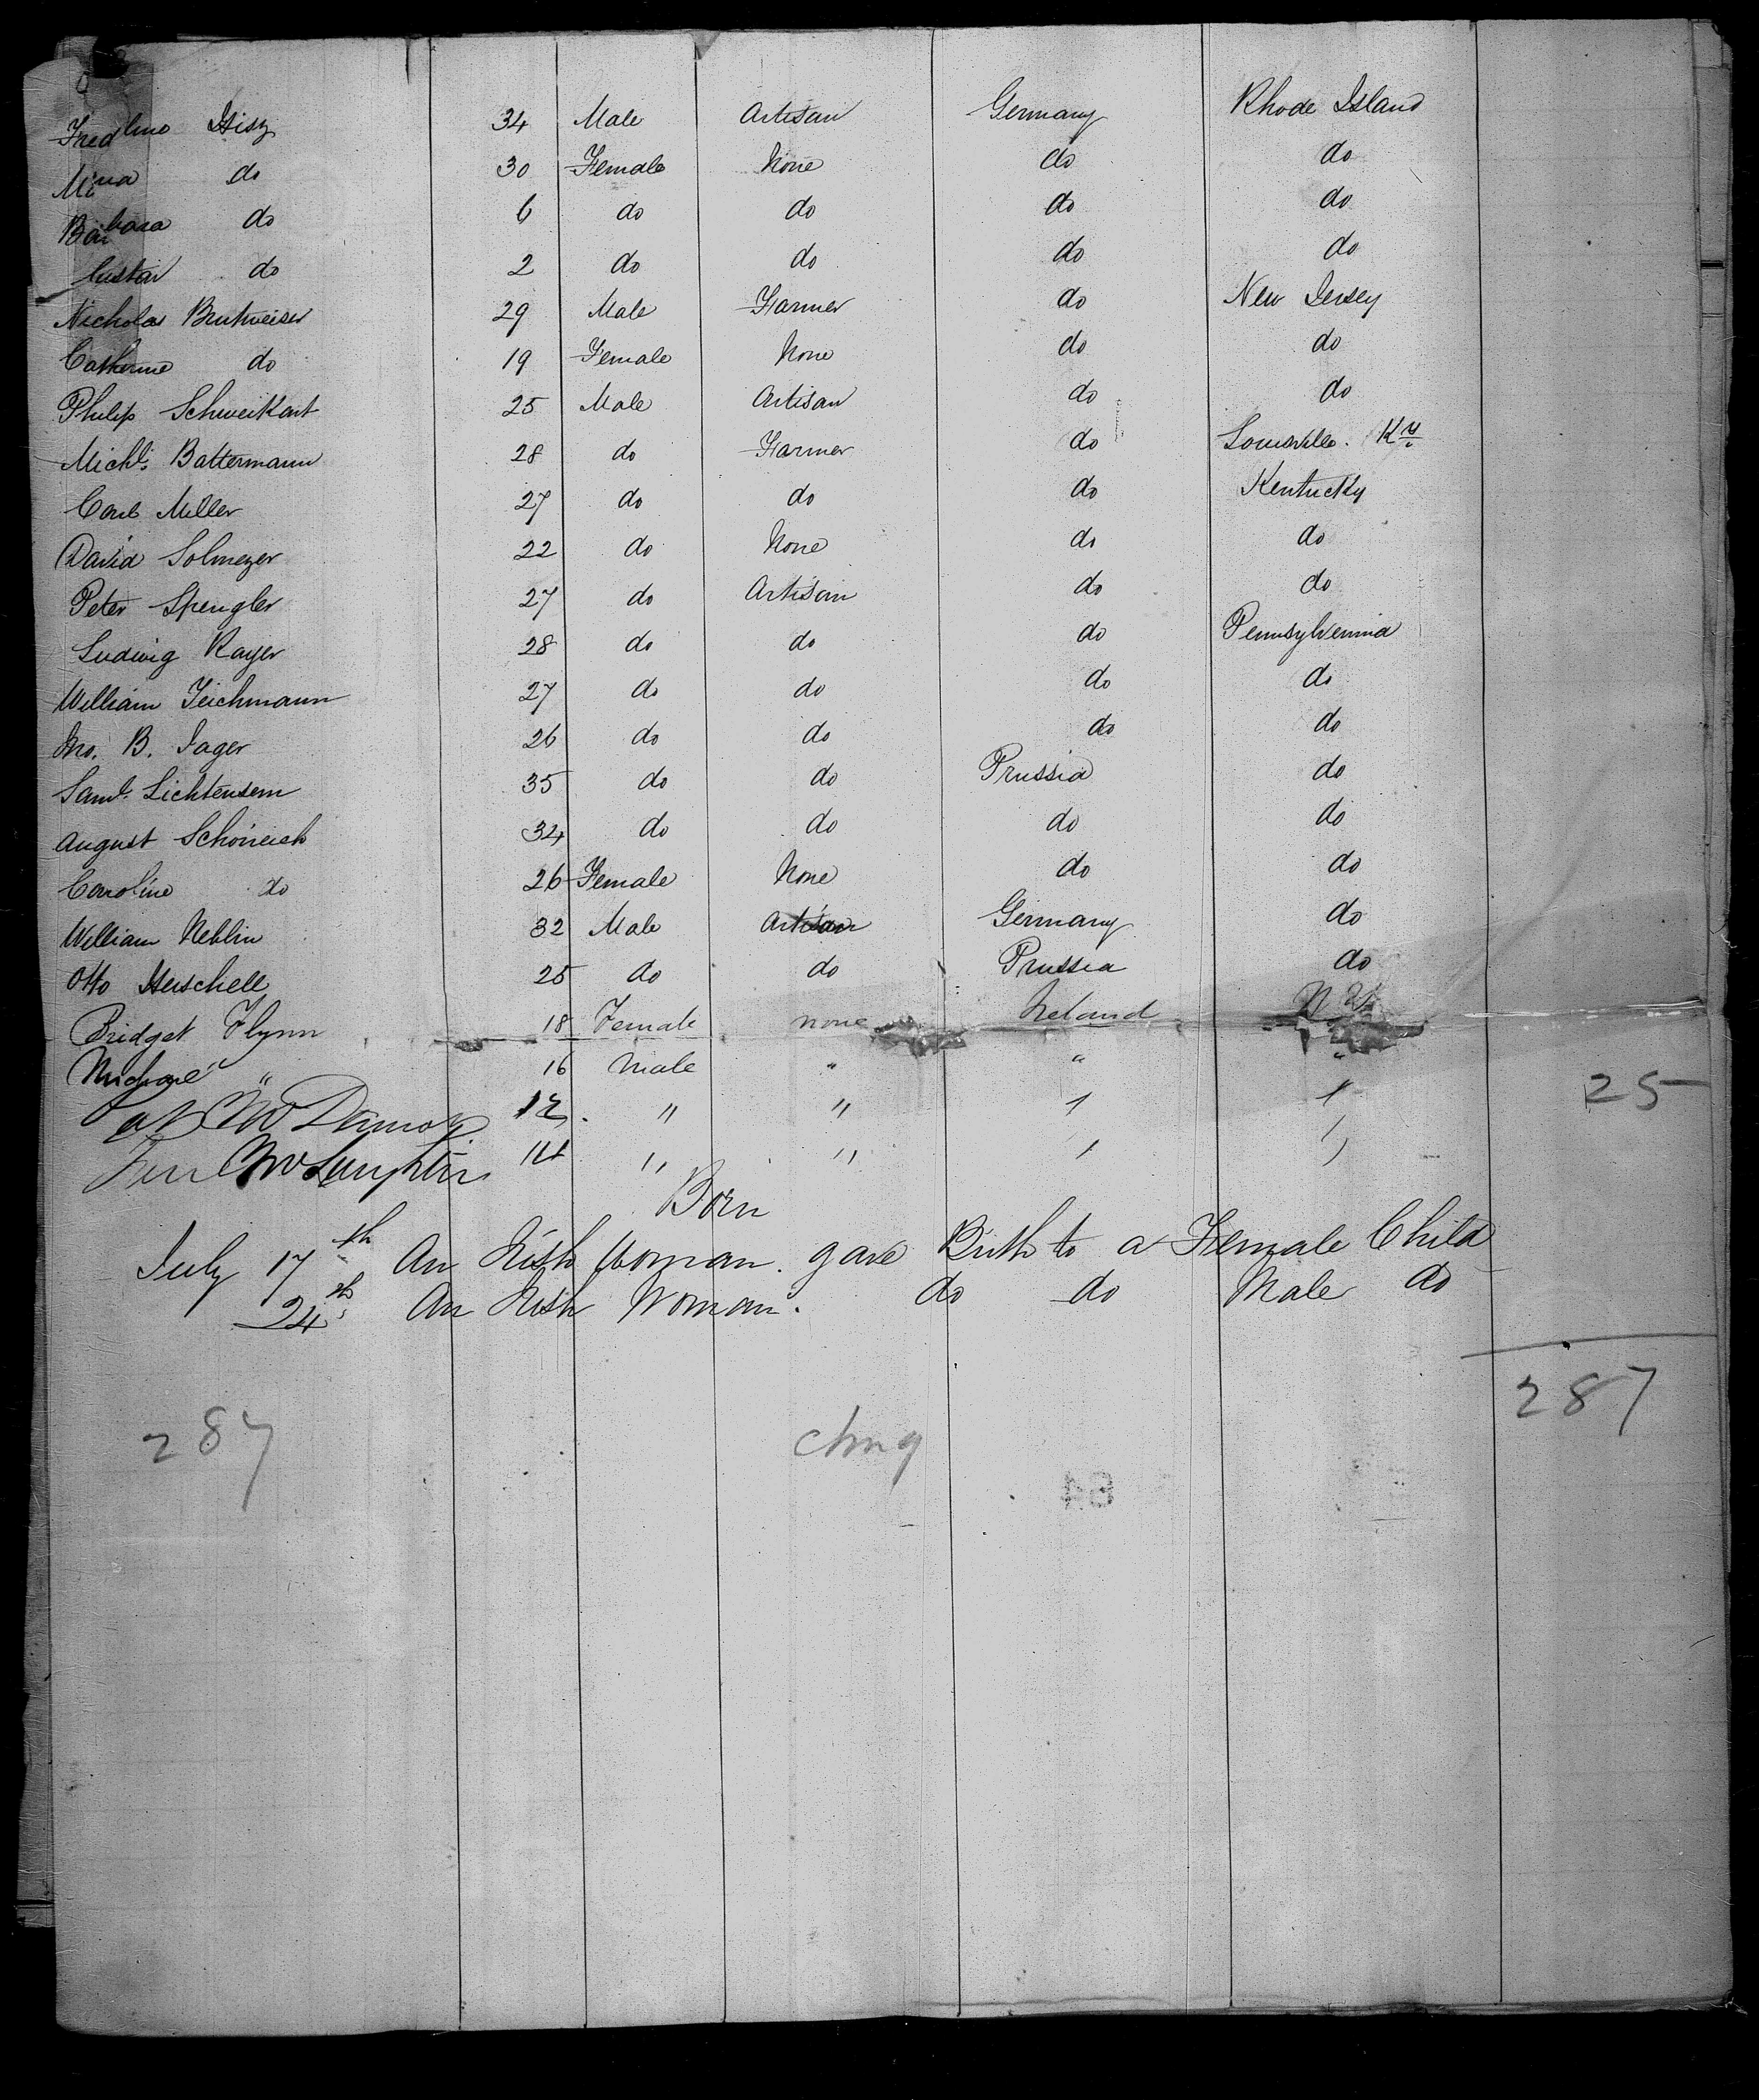 Hisz 34 Male Artisan Germany Rhode Island
Mina do 30 Female None do do
Barbara do 6 do do do do
Gustav do 2 do do do do
Nicholas Brutweiser 29 Male Farmer do New Jersey
Catherine do 19 Female None do do
Philip Schweikart 25 Male Artisan do do
Michl. Battermann 28 do Farmer do Louisville. Ky
Carl Miller 27 do do do Kentucky
David Solmeyer 22 do None do do
Peter Spengler 27 do Artisan do do
Ludwig Rayer 28 do do do Pennsylvennia
William Teichmann 27 do do do do
Jno. B. Jager 26 do do do do
Saml. Lichtensem 35 do do Prussia do
August Schoneich 34 do do do do
Caroline do 26 Female None do do
William Neblin 32 Male Artisan Germany do
Otto Herschell 25 do do Prussia do
Bridget Flynn 18 Female none Ireland N Y
Michael " 16 male " " "
Pat 12 " " " " 25
McLaughlin 14 " " " "
Born
July 17th An Irish Woman. gave Birth to a Female Child
24th An Irish Woman. do do Male do
287
287
64